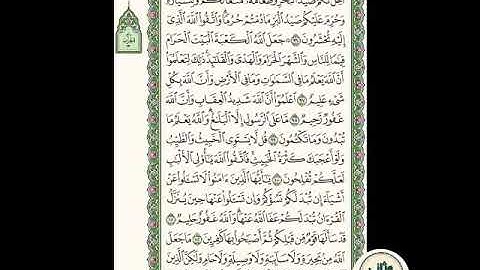 أُحِلَّ لَكُمْ صَيْدُ الْبَحْرِ وَطَعَامُهُ مَتَاعًا لَكُمْ وَلِلسَّيَّارَةِ
وَحُرِّمَ عَلَيْكُمْ صَيْدُ الْبَرِّ مَا دُمْتُمْ حُرُمًا وَاتَّقُوا اللَّهَ الَّذِي
إِلَيْهِ تُحْشَرُونَ ٩٦ جَعَلَ اللَّهُ الْكَعْبَةَ الْبَيْتَ الْحَرَامَ
قِيَامًا لِلنَّاسِ وَالشَّهْرَ الْحَرَامَ وَالْهَدْيَ وَالْقَلَائِدَ ذَٰلِكَ لِتَعْلَمُوا
أَنَّ اللَّهَ يَعْلَمُ مَا فِي السَّمَاوَاتِ وَمَا فِي الْأَرْضِ وَأَنَّ اللَّهَ بِكُلِّ
شَيْءٍ عَلِيمٌ ٩٧ اعْلَمُوا أَنَّ اللَّهَ شَدِيدُ الْعِقَابِ وَأَنَّ اللَّهَ
غَفُورٌ رَحِيمٌ ٩٨ مَا عَلَى الرَّسُولِ إِلَّا الْبَلَاغُ وَاللَّهُ يَعْلَمُ مَا
تُبْدُونَ وَمَا تَكْتُمُونَ ٩٩ قُلْ لَا يَسْتَوِي الْخَبِيثُ وَالطَّيِّبُ
وَلَوْ أَعْجَبَكَ كَثْرَةُ الْخَبِيثِ فَاتَّقُوا اللَّهَ يَا أُولِي الْأَلْبَابِ
لَعَلَّكُمْ تُفْلِحُونَ ١٠٠ يَا أَيُّهَا الَّذِينَ آمَنُوا لَا تَسْأَلُوا عَنْ
أَشْيَاءَ إِنْ تُبْدَ لَكُمْ تَسُؤْكُمْ وَإِنْ تَسْأَلُوا عَنْهَا حِينَ يُنَزَّلُ
الْقُرْآنُ تُبْدَ لَكُمْ عَفَا اللَّهُ عَنْهَا وَاللَّهُ غَفُورٌ حَلِيمٌ ١٠١
قَدْ سَأَلَهَا قَوْمٌ مِنْ قَبْلِكُمْ ثُمَّ أَصْبَحُوا بِهَا كَافِرِينَ ١٠٢ مَا جَعَلَ
اللَّهُ مِنْ بَحِيرَةٍ وَلَا سَائِبَةٍ وَلَا وَصِيلَةٍ وَلَا حَامٍ وَلَٰكِنَّ الَّذِينَ